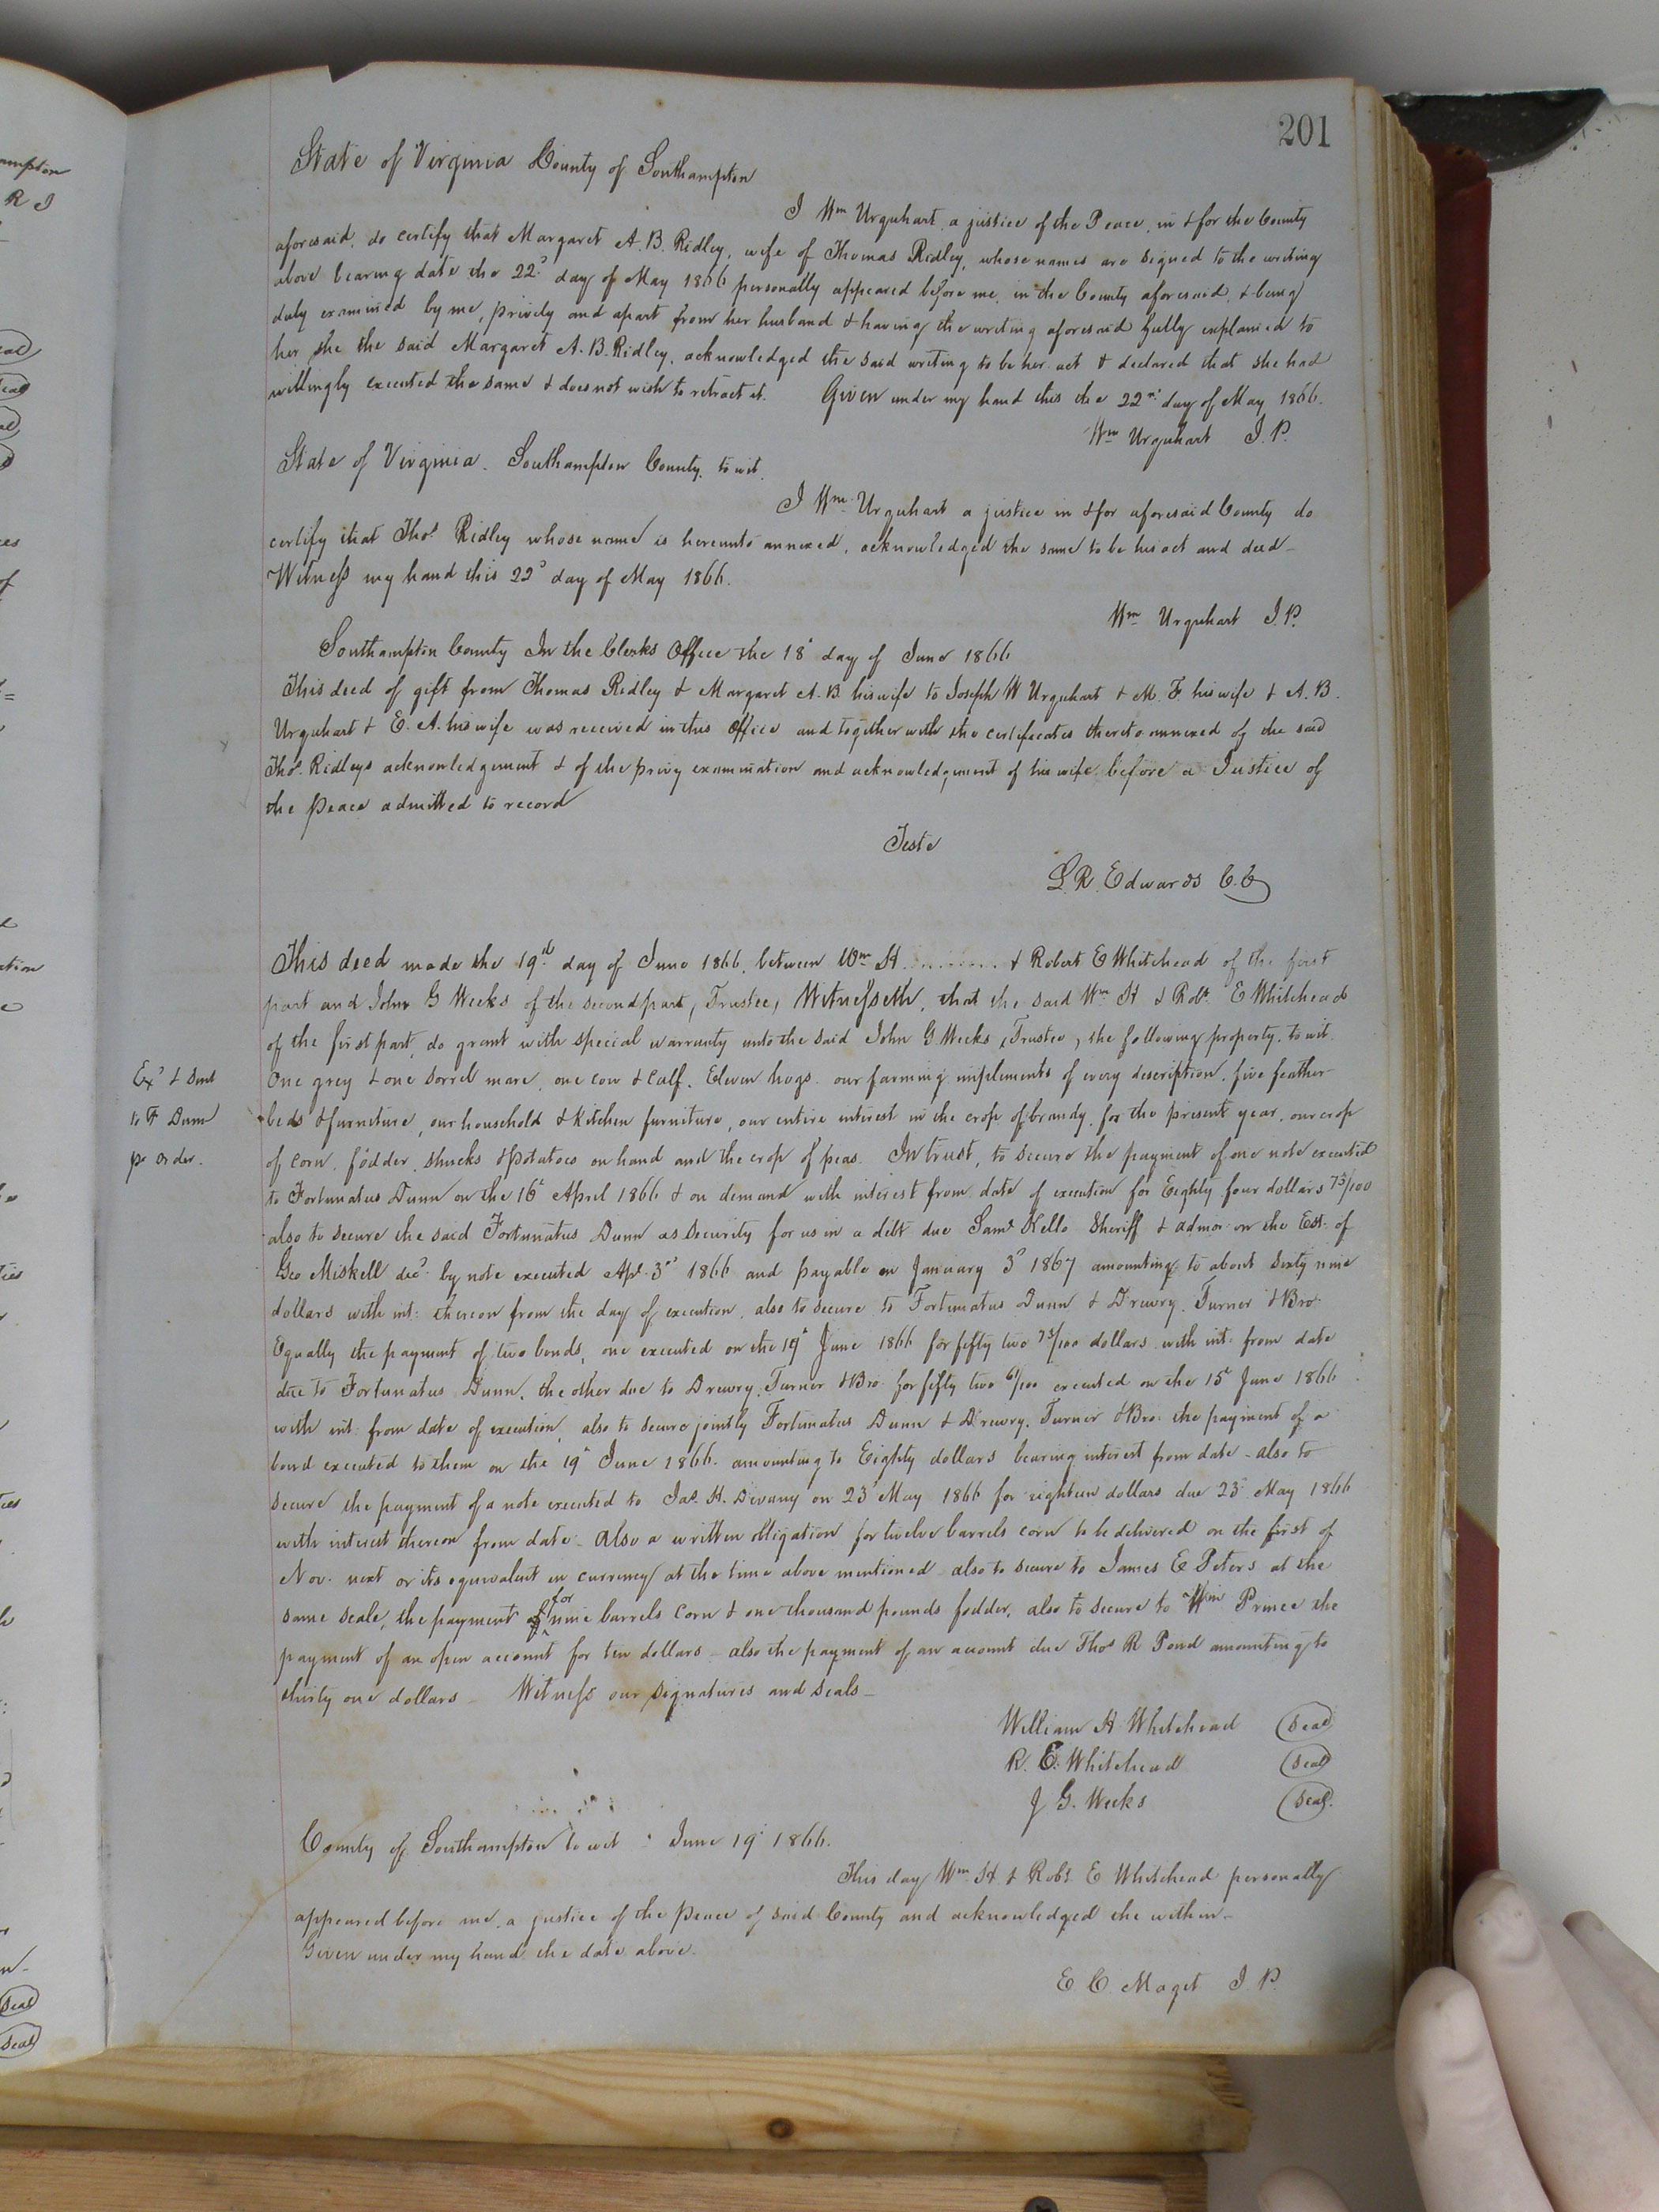 201
State of Virginia County of Southampton
I Wm Urquhart a justice of the Peace, in & for the County
aforesaid, do certify that Margaret A. B. Ridley, wife of Thomas Ridley, whose names are signed to the writing
above bearing date the 22d day of May 1866 personally appeared before me, in the County aforesaid, & being
duly examined by me, privily and apart from her husband & having the writing aforesaid fully explained to
her she the said Margaret A. B. Ridley, acknowledged the said writing to be her act & declared that she had
willingly executed the same & does not wish to retract it. Given under my hand this the 22nd day of May 1866.
Wm Urquhart J. P.
State of Virginia. Southampton County, to wit.
I Wm Urquhart a justice in & for aforesaid County do
certify that Thos Ridley whose name is hereunto annexed, acknowledged the same to be his act and deed –
Witness my hand this 22d day of May 1866.
Wm Urquhart J. P.
Southampton County In the Clerks Office the 18 day of June 1866
This deed of gift from Thomas Ridley & Margaret A. B his wife to Joseph W Urquhart & M. F. his wife & A. B.
Urquhart & E. A. his wife was received in this Office and together with the certificates thereto annexed of the said
Thos Ridleys acknowledgement & of the privy examination and acknowledgment of his wife before a Justice of
the Peace admitted to record
Teste
L. R. Edwards C. C
This deed made the 19th day of June 1866, between Wm H .......... & Robert E Whitehead of the first
part and John G Weeks of the second part, Trustee, Witnesseth, that the said Wm H & Robt E Whitehead
of the first part, do grant with special warranty unto the said John G Weeks, Trustee, the following property, to wit.
One grey & one sorrel mare, one cow & calf, Eleven hogs, our farming implements of every description, five feather
beds & furniture, our household & kitchen furniture, our entire interest in the crop of brandy, for the present year, our crop
of corn, fodder, shucks & potatoes on hand and the crop of peas. In trust, to secure the payment of one note executed
to Fortunatus Dunn on the 16t April 1866 & on demand with interest from date of execution for Eighty four dollars 75/100
also to secure the said Fortunatus Dunn as security for us in a debt due Saml Kello Sheriff & admor on the Est. of
Geo Miskell decd by note executed Apl. 3d 1866 and payable on January 3d 1867 amounting to about Sixty nine
dollars with int: thereon from the day of execution, also to secure to Fortunatus Dunn & Drewry, Turner & Bro
Equally the payment of two bonds, one executed on the 19t June 1866 for fifty two 75/100 dollars with int: from date
due to Fortunatus Dunn, the other due to Drewry, Turner & Bro for fifty two /100 executed on the 15t June 1866
with int: from date of execution, also to secure jointly Fortunatus Dunn & Drewry, Turner & Bro: the payment of a
bond executed to them on the 19t June 1866. amounting to Eighty dollars bearing interest from date – also to
secure the payment of a note executed to Jas. H. Divany on 23 May 1866 for eighteen dollars due 23 May 1866
with interest thereon from date – Also a written obligation for twelve barrels corn to be delivered on the first of
Nov. next or its equivalent in currency at the time above mentioned also to secure to James E Peters at the
same scale, the payment for nine barrels corn & one thousand pounds fodder, also to secure to Wm Prince the
payment of an open account for ten dollars – also the payment of an account due Thos R Pond amounting to
thirty one dollars – Witness our signatures and seals –
Exd & Sent
to F Dunn
pr order.
William H Whitehead (Seal)
R. E. Whitehead (Seal)
J G. Weeks (Seal)
County of Southampton to wit : June 19t 1866.
This day Wm H & Robt. E Whitehead personally
appeared before me, a justice of the Peace of said County and acknowledged the within –
Given under my hand the date above.
E C. Maget J. P.